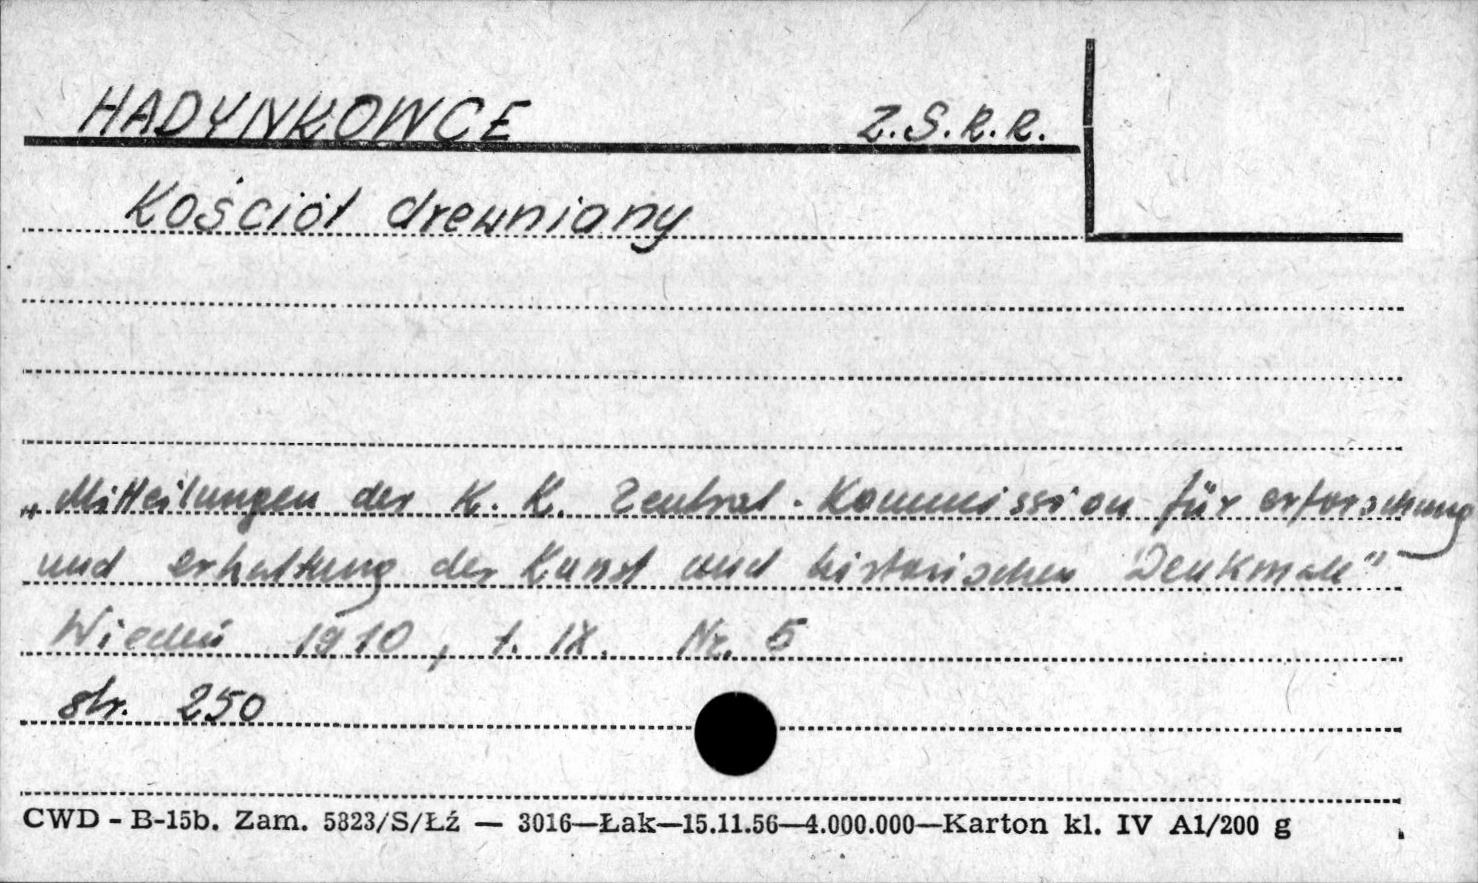 HADYNKOWCE Z.S.R.R.
Kościół drewniany
„Mitteilungen der K. K. Zentral - Kommission für erforschung
und erhaltung der Kunst und historischen Denkmale"
Wiedeń 1910, t. IX. Nr. 5
str. 250
CWD - B-15b. Zam. 5823/S/Łź — 3016—Łak—15.11.56—4.000.000—Karton kl. IV A1/200 g